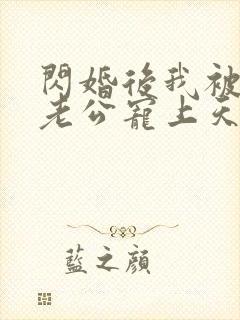 閃婚後我被
老公寵上天
藍之顔